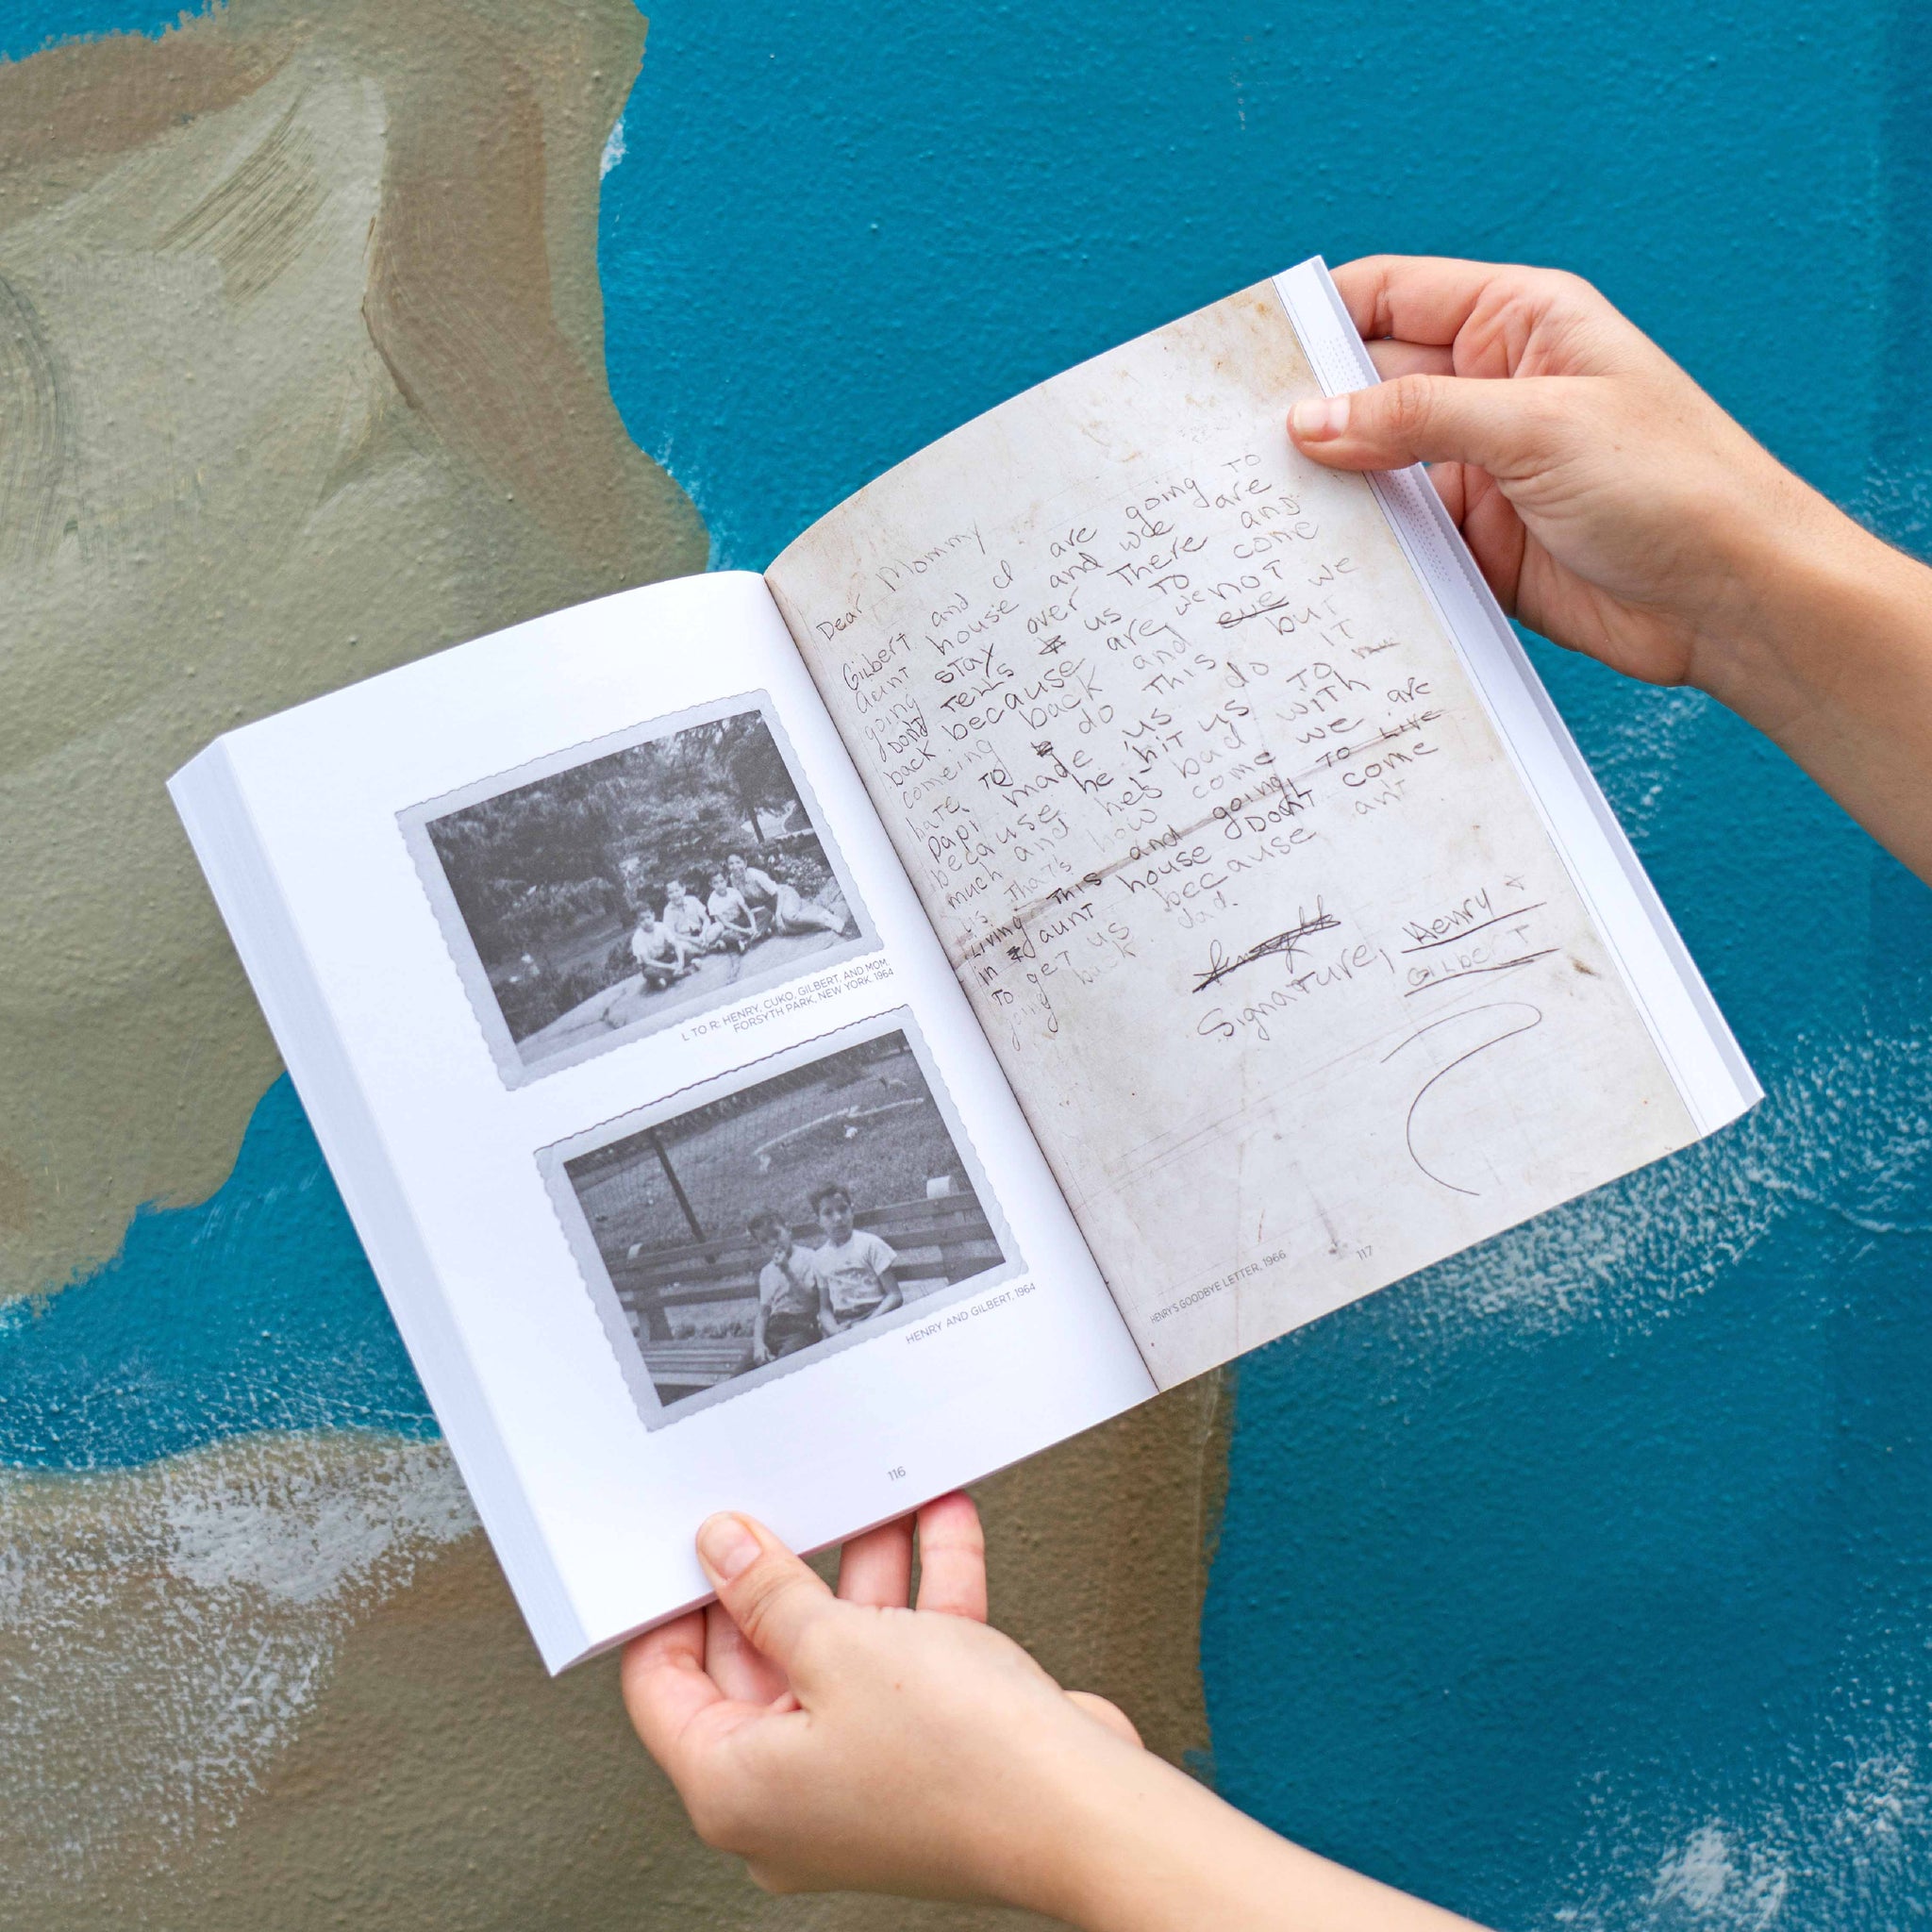 L TO R: HENRY, CUKO, GILBERT, AND MOM,
FORSYTH PARK, NEW YORK, 1964
HENRY AND GILBERT, 1964
116
Dear Mommy
Gilbert and I are going to
aunt house and we are
going stay over there and
dont tells us to come
back because are we not
comeing back and we
hate to do this but
Papi made us do it
because he hit us to
much and hes bad with
us that's how come we are
living this and going to live
in aunt house Dont come
to get us because ant
going back dad.
Signature, Henry +
Gilbert
HENRY'S GOODBYE LETTER, 1966
117